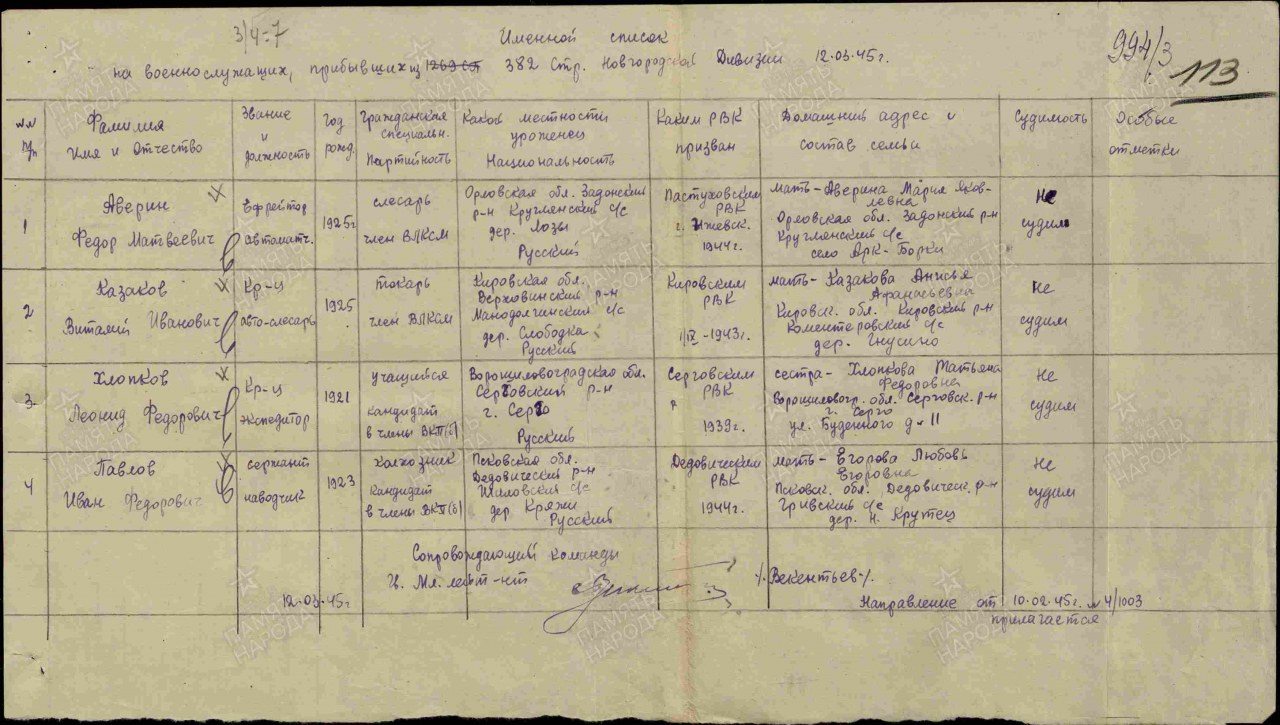 3/4-7
Именной список
994/3
на военнослужащих, прибывших из 1269 сп 382 Стр. Новгородской Дивизии 12.03.45г.
113
№№ п/п
Фамилия Имя и Отчество
Звание и должность
Год рожд.
Гражданская специальн. Партийность
Какой местности уроженец Национальность
Каким РВК призван
Домашний адрес и состав семьи
Судимость
Особые отметки
1
Аверин
Федор Матвеевич
Ефрейтор
автоматч.
1925г
слесарь
член ВЛКСМ
Орловская обл. Задонский
р-н Круглянский с/с
дер. Лозы
Русский
Пастуховским
РВК
г. Ижевск.
1944г.
мать - Аверина Мария Яков-
левна
Орловская обл. Задонский р-н
Круглянский с/с
село Арк-Борки
Не
судим
2
Казаков
Виталий Иванович
Кр-ц
авто-слесарь
1925
токарь
член ВЛКСМ
Кировская обл.
Верховинский р-н
Манодолгинский с/с
дер. Слободка
Русский
Кировским
РВК
1/IX-1943г.
мать - Казакова Анисья
Афанасьевна
Кировск. обл. Кировский р-н
Коментеровский с/с
дер. Гнусино
Не
судим
3
Хлопков
Леонид Федорович
Кр-ц
экспедитор
1921
учащийся
кандидат
в члены ВКП(б)
Ворошиловоградская обл.
Серговский р-н
г. Серго
Русский
Серговским
РВК
1939г.
сестра - Хлопкова Татьяна
Федоровна
Ворошиловогр. обл. Серговск. р-н
г. Серго
ул. Буденного д-11
Не
судим
4
Павлов
Иван Федорович
сержант
наводчик
1923
колхозник
кандидат
в члены ВКП(б)
Псковская обл.
Дедовический р-н
Шиловский с/с
дер Кряжи
Русский
Дедовическим
РВК
1944г.
мать - Егорова Любовь
Егоровна
Псковск. обл. Дедовическ. р-н
Гривский с/с
дер. Н. Крутец
Не
судим
Сопровождающий команды
Гв. Мл. лейт-нт /. Векентьев ./.
12.03.45г
Направление от 10.02.45г. №4/1003
прилагается
ПАМЯТЬ НАРОДА